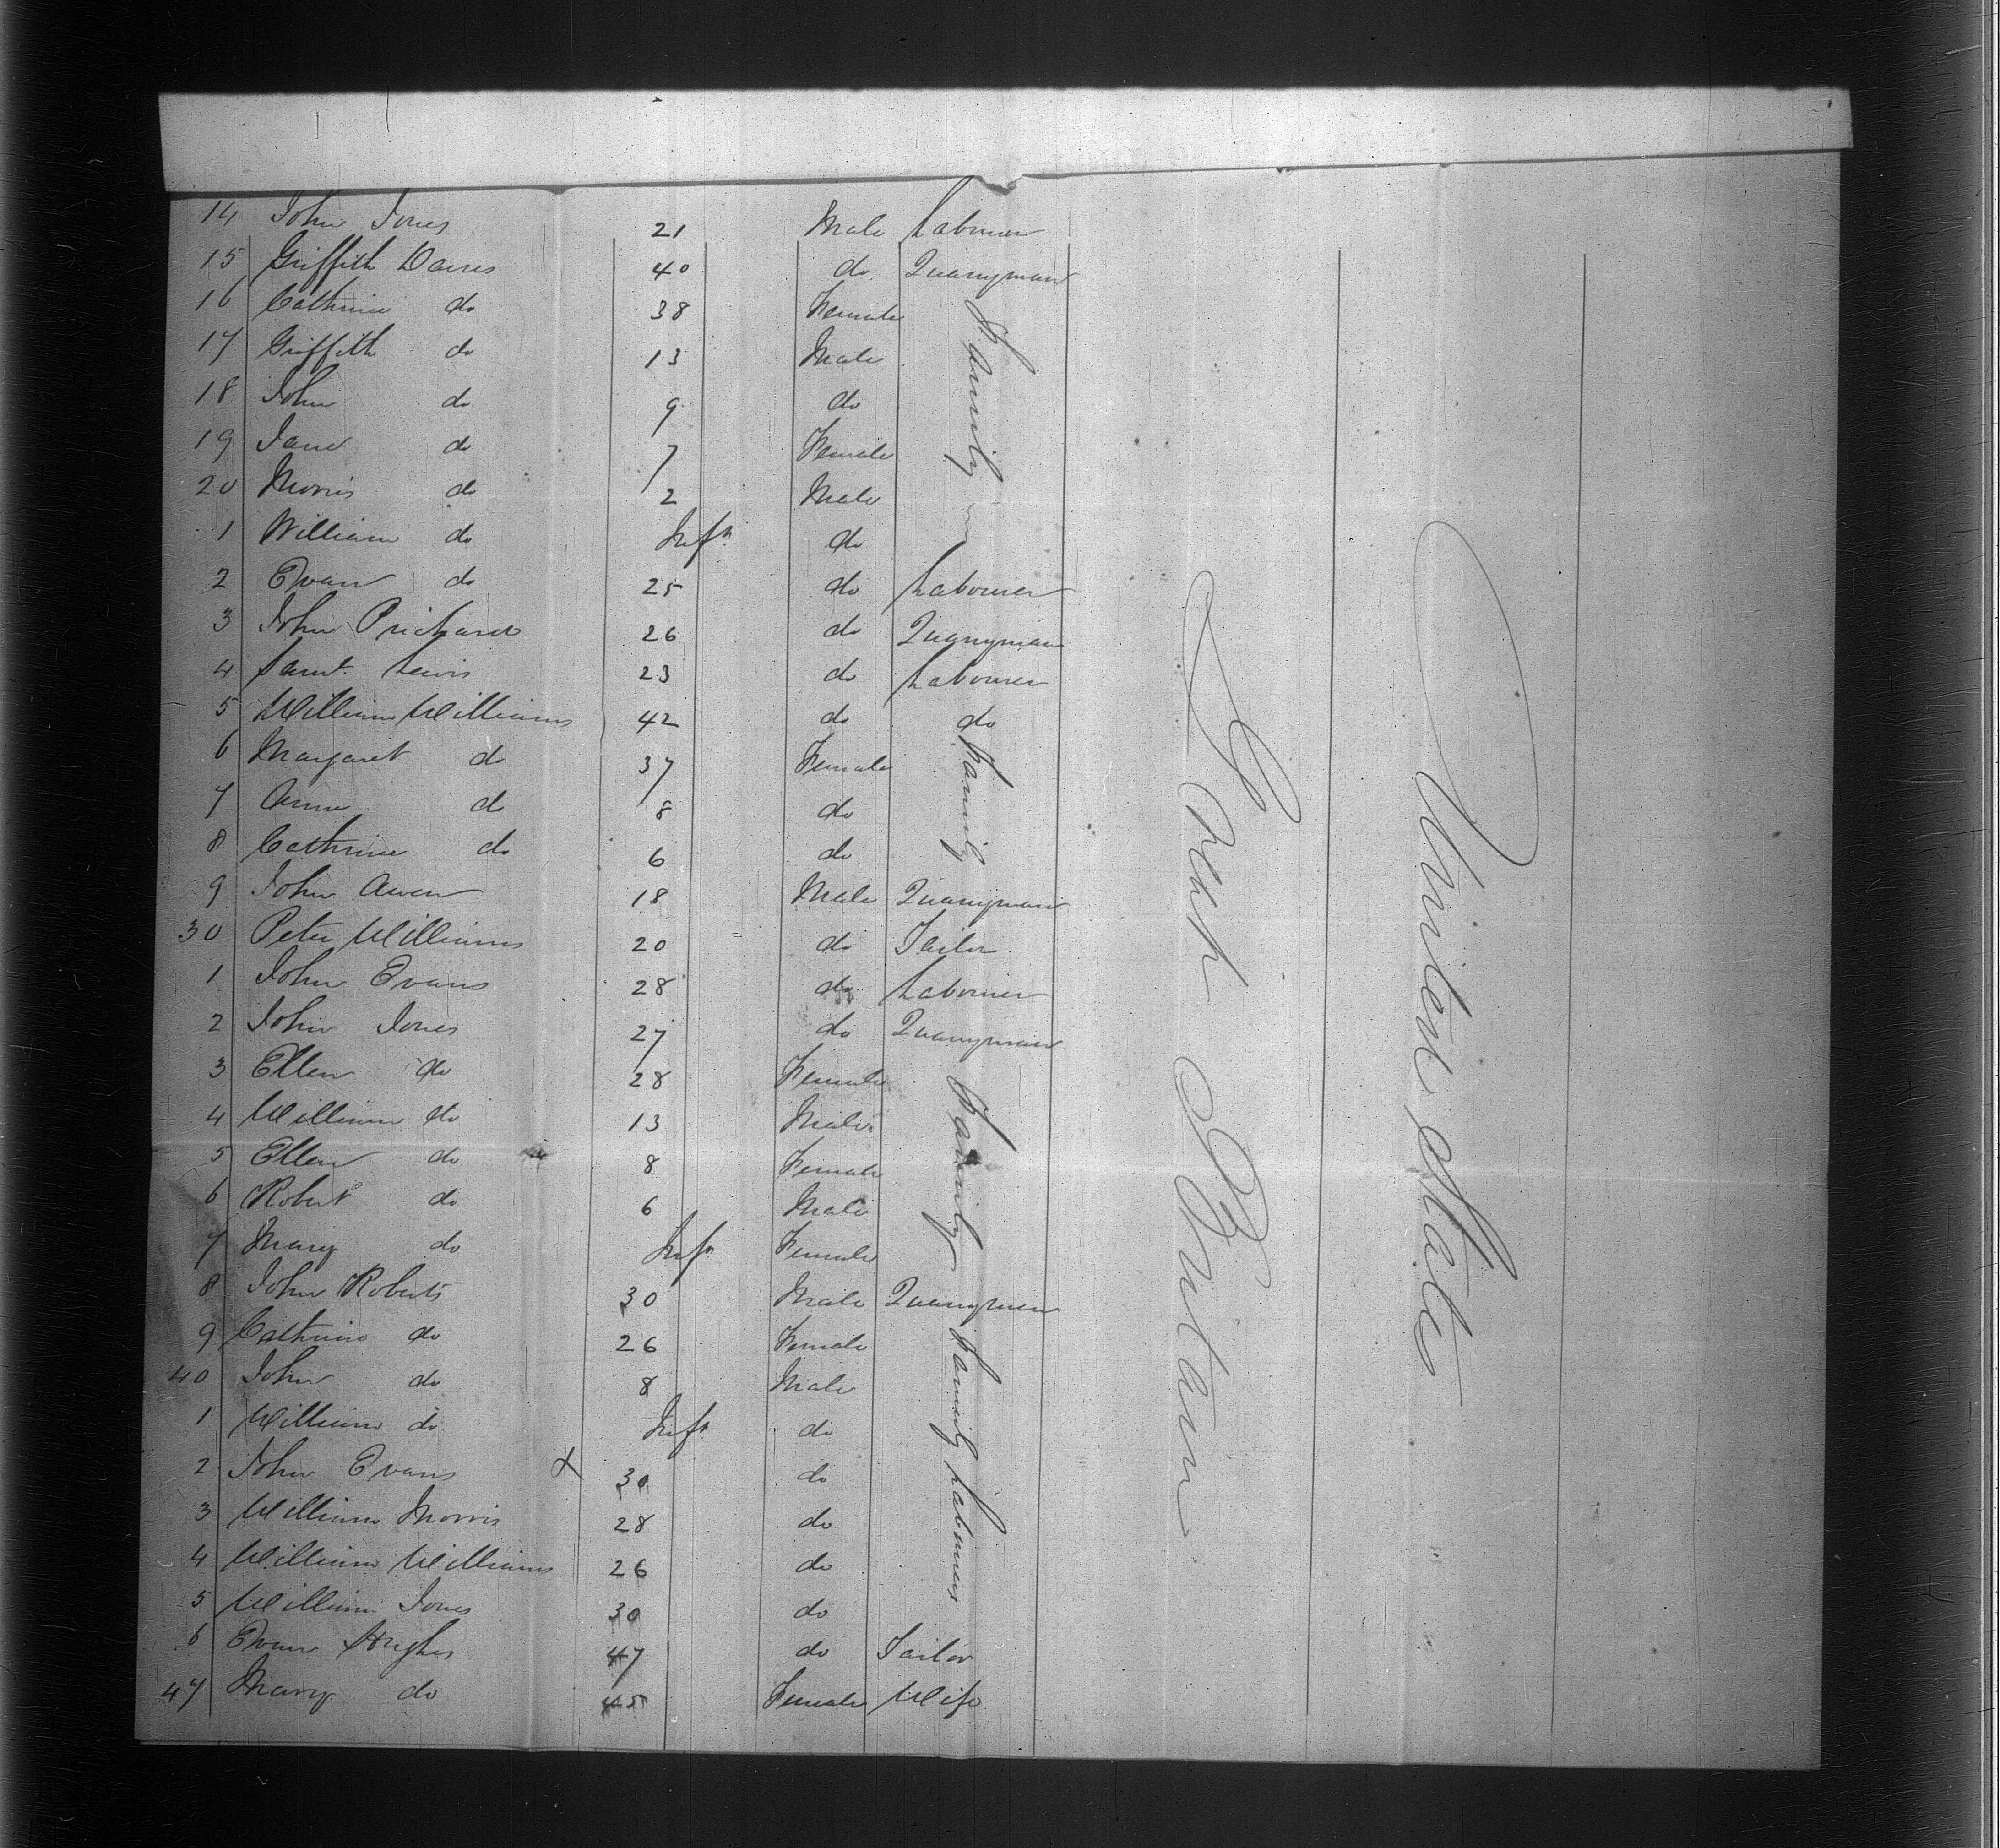 14 John Jones 21 Male Labourer
15 Griffith Davies 40 do Quarryman
16 Cathrine do 38 Female
17 Griffith do 13 Male
18 John do 9 do
19 Jane do 7 Female
20 Morris do 2 Male
Family
1 William do Inft do
2 Evan do 25 do Labourer
3 John Prichard 26 do Quarryman
4 Saml. Lewis 23 do Labourer
5 William Williams 42 do do
6 Margaret do 37 Female
7 Anne do 8 do
8 Cathrine do 6 do
Family
9 John Owen 18 Male Quarryman
30 Peter Williams 20 do Tailor
1 John Evans 28 do Labourer
2 John Jones 27 do Quarryman
3 Ellen do 28 Female
4 William do 13 Male
5 Ellen do 8 Female
6 Robert do 6 Male
7 Mary do Inft Female
Family
8 John Roberts 30 Male Quarryman
9 Cathrine do 26 Female
40 John do 8 Male
1 William do Inft do
Family
2 John Evans x 30 do
3 William Morris 28 do
4 William Williams 26 do
5 William Jones 30 do
Labourers
6 Evan Hughes 47 do Tailor
47 Mary do 45 Female Wife
Great Britain
United States